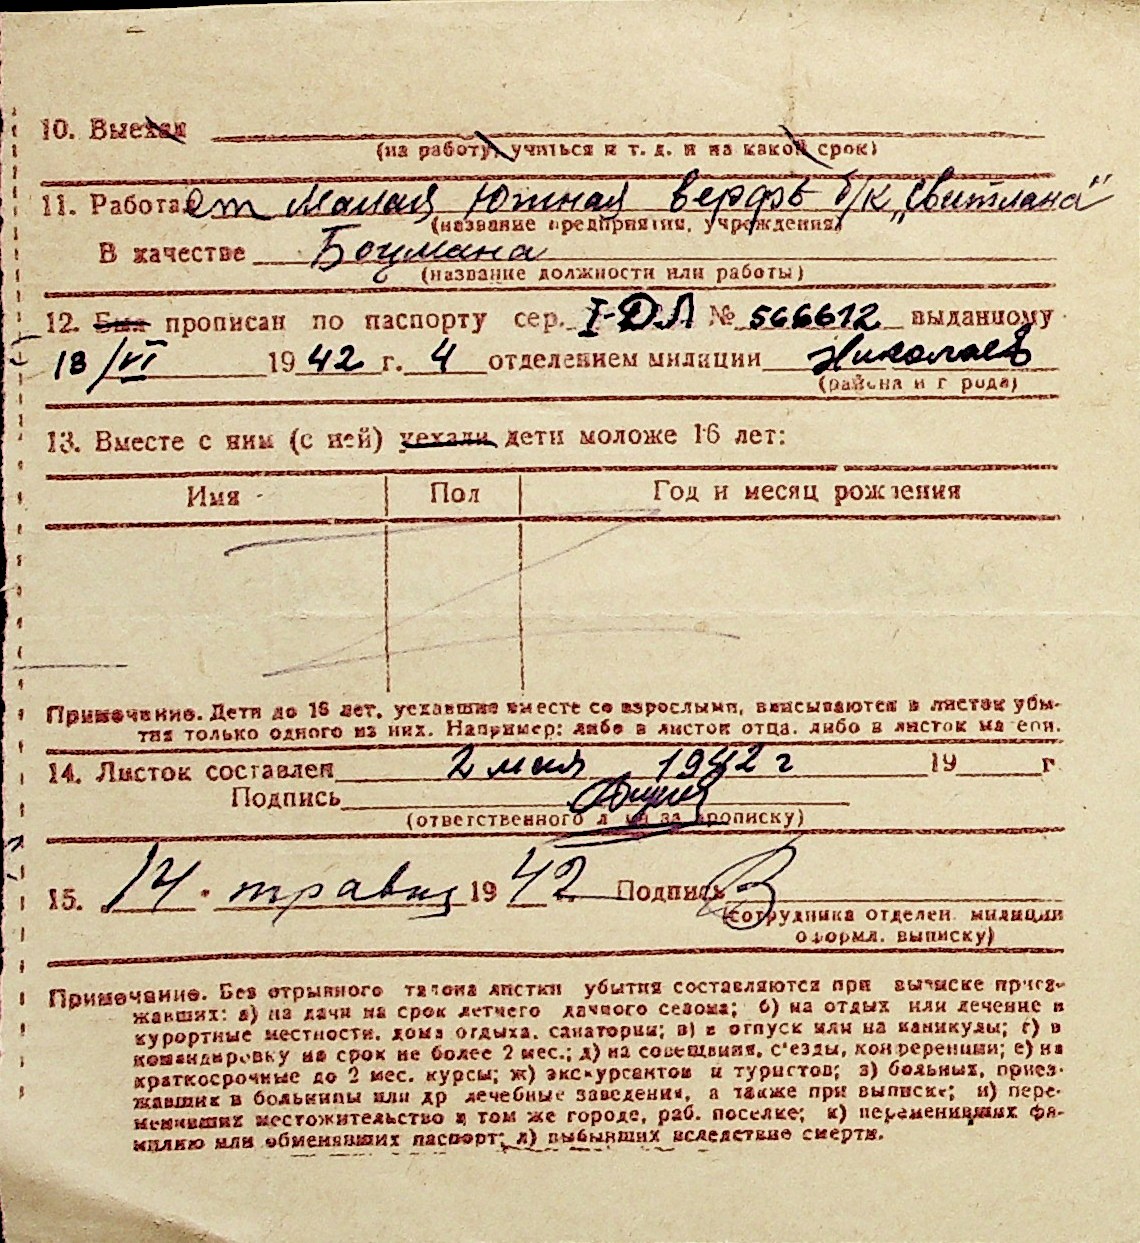 10. Выехал
(на работу, учиться и т. д. и на какой срок)
11. Работает Малая Южная верфь б/к „Свитлана"
(название предприятия, учреждения)
В качестве Боцмана
(название должности или работы)
12. Был прописан по паспорту сер. I-ДЛ № 566612 выданному
18/VI 1942 г. 4 отделением милации Николаев
(района и г рода)
13. Вместе с ним (с ней) уехали дети моложе 16 лет:
Имя Пол Год и месяц рождения
Примечание. Дети до 16 лет, уехавшие вместе со взрослыми, вписываются в листок убы-
тия только одного из них. Например: либо в листок отца, либо в листок ма ери.
14. Листок составлен 2 мая 1942 г 19 г
Подпись
(ответственного л ца за прописку)
15. 14 · травня 1942 Подпись
сотрудника отделен. милиции
оформл. выписку)
Примечание. Без отрывного талона листки убытия составляются при выписке приез-
жавших: а) на дачи на срок летнего дачного сезона; б) на отдых или лечение в
курортные местности, дома отдыха, санатории; в) в отпуск или на каникулы; г) в
командировку на срок не более 2 мес.; д) на совещания, с'езды, конференции; е) на
краткосрочные до 2 мес. курсы; ж) экскурсантов и туристов; з) больных, приез-
жавших в больницы или др лечебные заведения, а также при выписке; и) пере-
менивших местожительство в том же городе, раб. поселке; к) переменивших фа-
милию или обменявших паспорт; л) выбывших вследствие смерти.